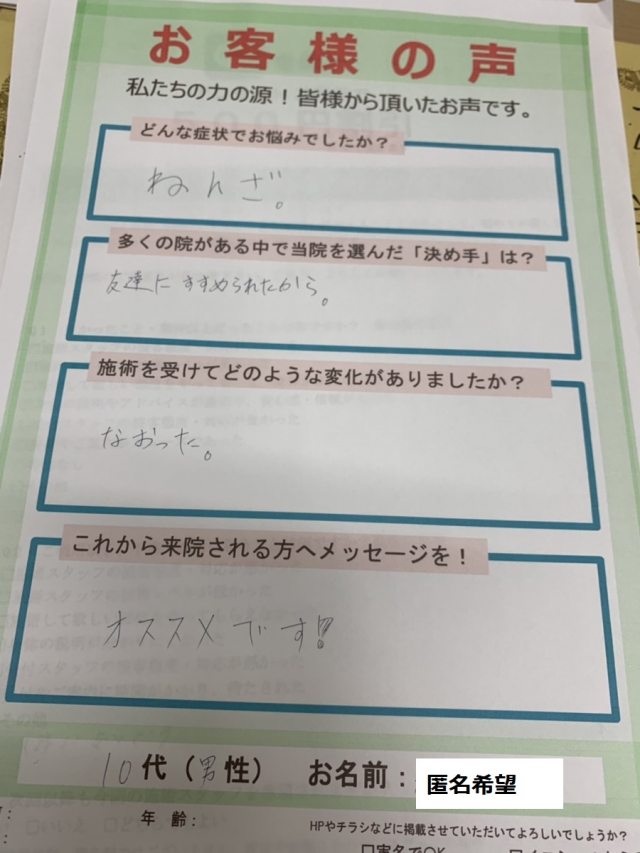 お客様の声
私たちの力の源！皆様から頂いたお声です。
どんな症状でお悩みでしたか？
ねんざ。
多くの院がある中で当院を選んだ「決め手」は？
友達にすすめられたから。
施術を受けてどのような変化がありましたか？
なおった。
これから来院される方へメッセージを！
オススメです!
10代（男性） お名前：匿名希望
年齢：
HPやチラシなどに掲載させていただいてよろしいでしょうか？